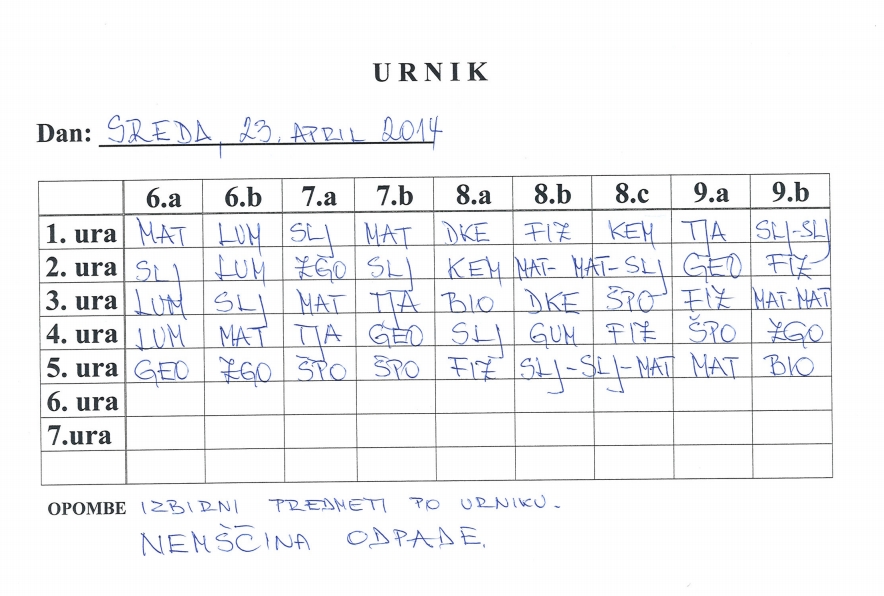 URNIK
Dan: SREDA, 23. APRIL 2014
6.a 6.b 7.a 7.b 8.a 8.b 8.c 9.a 9.b
1. ura MAT LUM SLJ MAT DKE FIZ KEM TJA SLJ-SLJ
2. ura SLJ LUM ZGO SLJ KEM MAT- MAT-SLJ GEO FIZ
3. ura LUM SLJ MAT TJA BIO DKE ŠPO FIZ MAT-MAT
4. ura LUM MAT TJA GEO SLJ GUM FIZ ŠPO ZGO
5. ura GEO ZGO ŠPO ŠPO FIZ SLJ-SLJ-MAT MAT BIO
6. ura
7.ura
OPOMBE IZBIRNI PREDMETI PO URNIKU.
NEMŠČINA ODPADE.